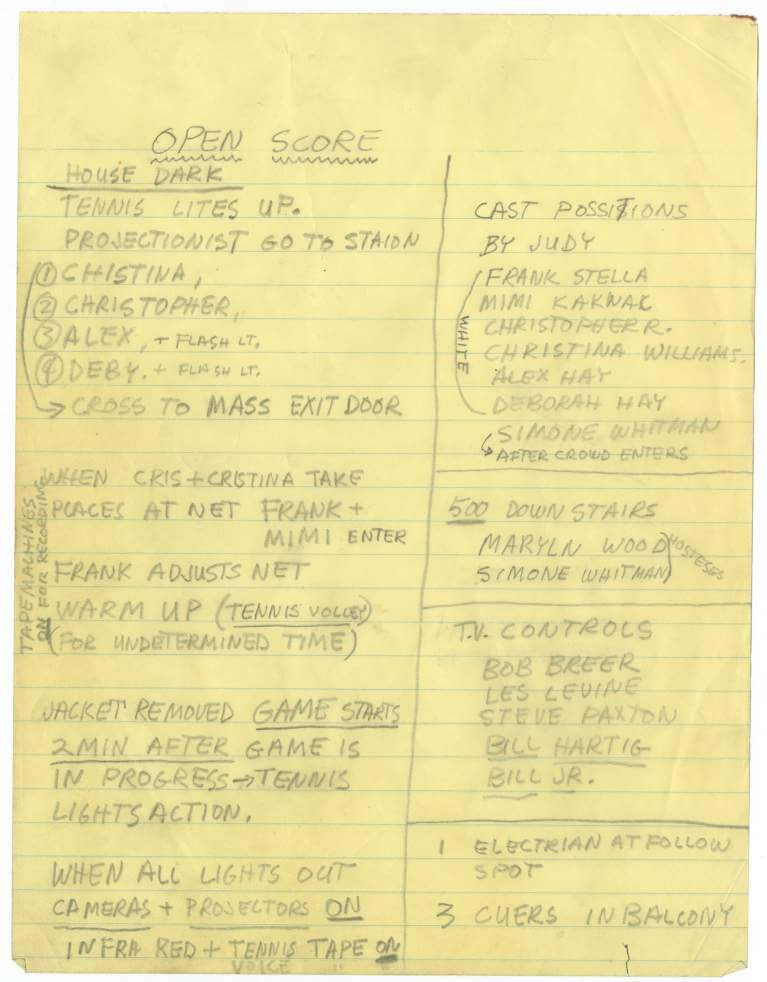 OPEN SCORE
HOUSE DARK
TENNIS LITES UP.
PROJECTIONIST GO TO STAION
① CHISTINA,
② CHRISTOPHER,
③ ALEX, + FLASH LT.
④ DEBY. + FLASH LT.
→ CROSS TO MASS EXIT DOOR
WHEN CRIS + CRISTINA TAKE
PLACES AT NET FRANK +
MIMI ENTER
FRANK ADJUSTS NET
WARM UP (TENNIS VOLLEY)
(FOR UNDETERMINED TIME)
TAPE MACHINES
ON FOR RECORDING
JACKET REMOVED GAME STARTS
2 MIN AFTER GAME IS
IN PROGRESS → TENNIS
LIGHTS ACTION.
WHEN ALL LIGHTS OUT
CAMERAS + PROJECTORS ON
INFRA RED + TENNIS TAPE ON
VOICE " "
CAST POSSITIONS
BY JUDY
FRANK STELLA
MIMI KAKWAK
CHRISTOPHER R.
CHRISTINA WILLIAMS.
ALEX HAY
DEBORAH HAY
WHITE
SIMONE WHITMAN
AFTER CROWD ENTERS
500 DOWN STAIRS
MARYLN WOOD
SIMONE WHITMAN
HOSTESES
T.V. CONTROLS
BOB BREER
LES LEVINE
STEVE PAXTON
BILL HARTIG
BILL JR.
1 ELECTRIAN AT FOLLOW
SPOT
3 CUERS IN BALCONY